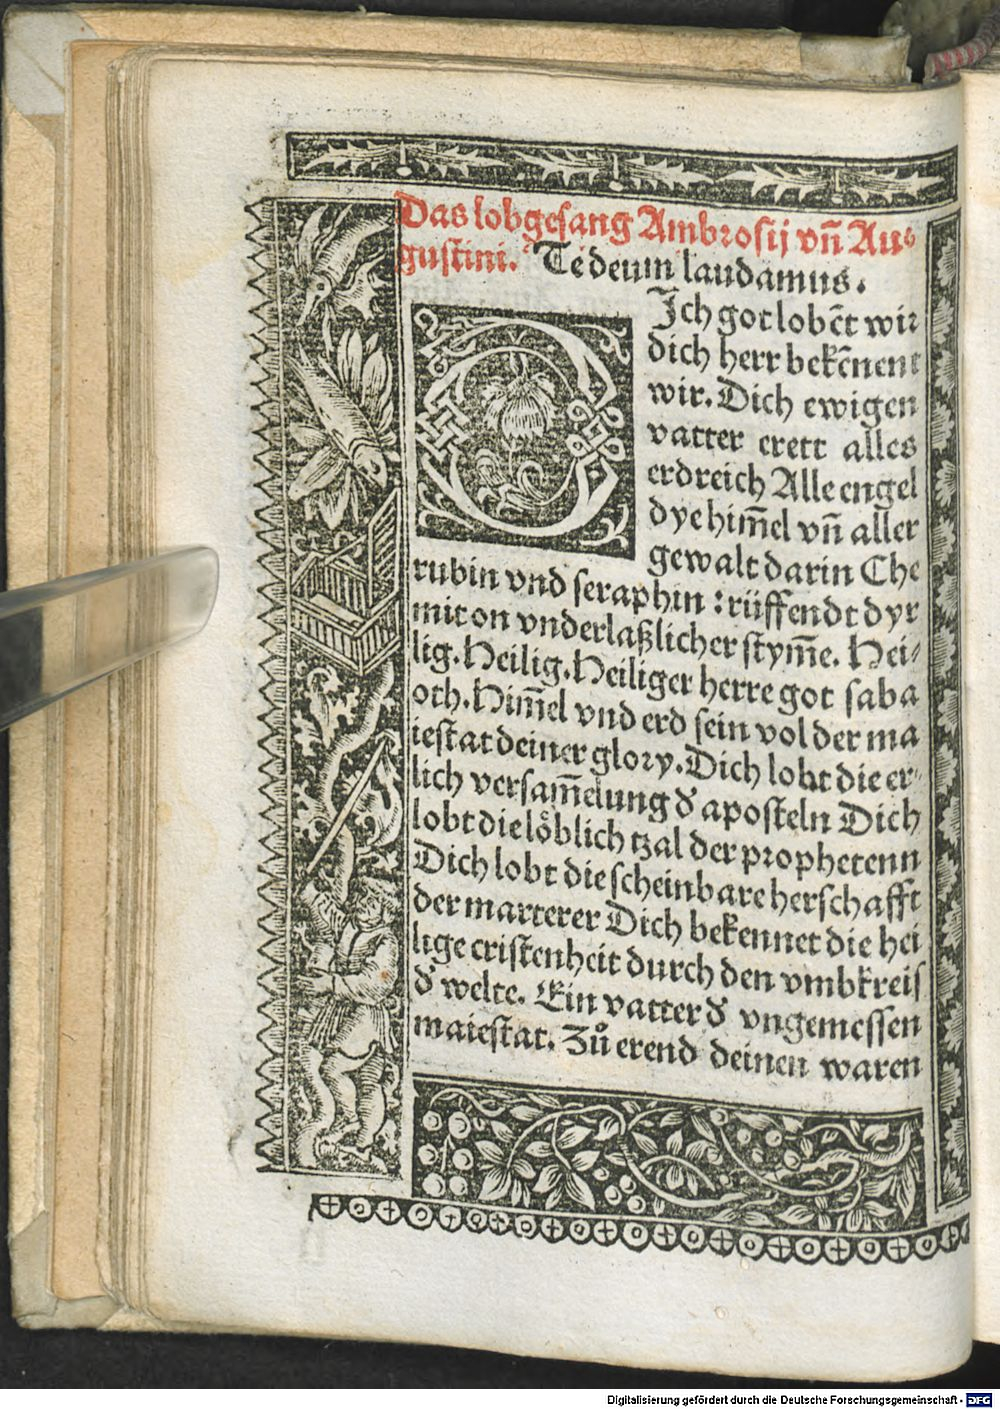 Das lobgesang Ambrosij vñ Au⸗
gustini. Te deum laudamus.
DJch got lobēt wir
dich herr bekēnent
wir. Dich ewigen
vatter erett alles
erdreich Alle engel
dye him̄el vñ aller
gewalt darin Che
rubin vnd seraphin : rüffendt dyr
mit on vnderlaßlicher stym̄e. Hei⸗
lig. Heilig. Heiliger herre got saba
oth. Him̄el vnd erd sein vol der ma
iestat deiner glory. Dich lobt die er⸗
lich versam̄elung đ aposteln Dich
lobt die loͤblich tzal der prophetenn
Dich lobt die scheinbare herschafft
der marterer Dich bekennet die hei
lige cristenheit durch den vmbkreis
đ welte. Ein vatter đ vngemessen
maiestat. Zů erend deinen waren
Digitalisierung gefördert durch die Deutsche Forschungsgemeinschaft - DFG